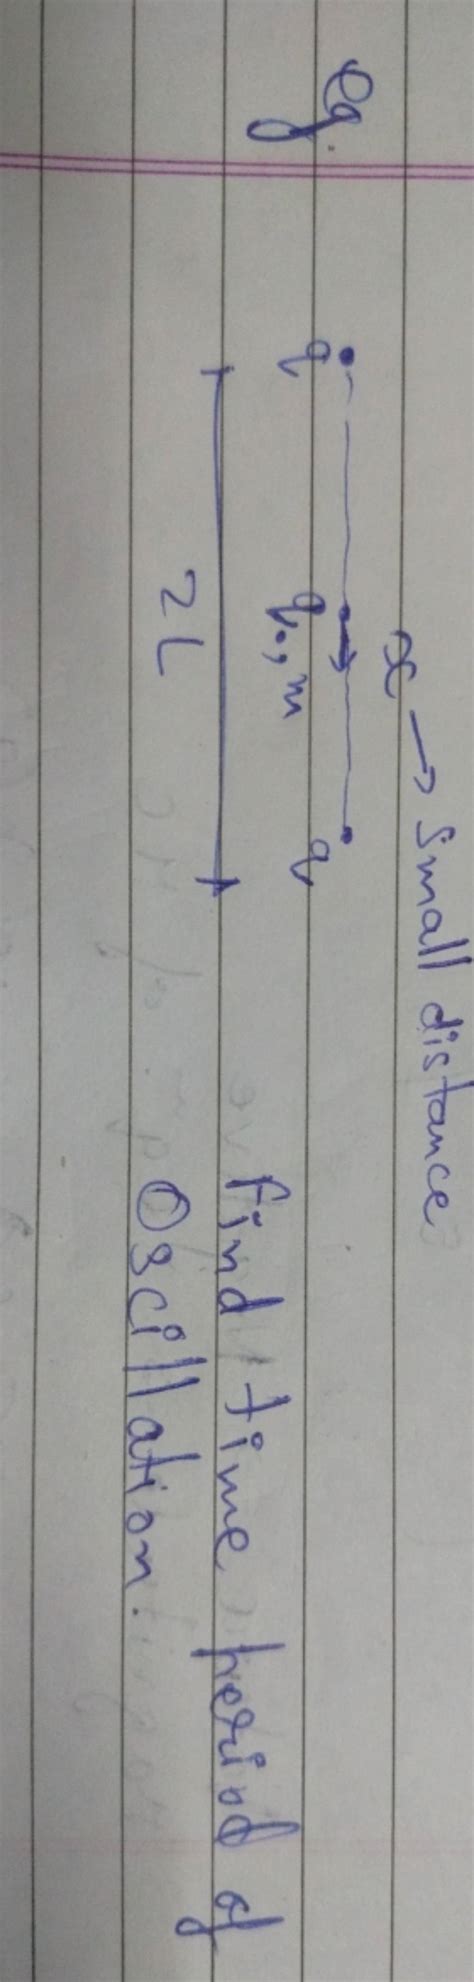 eg.
x → Small distance
q q₀, m q
2L
find time period of
Oscillation.